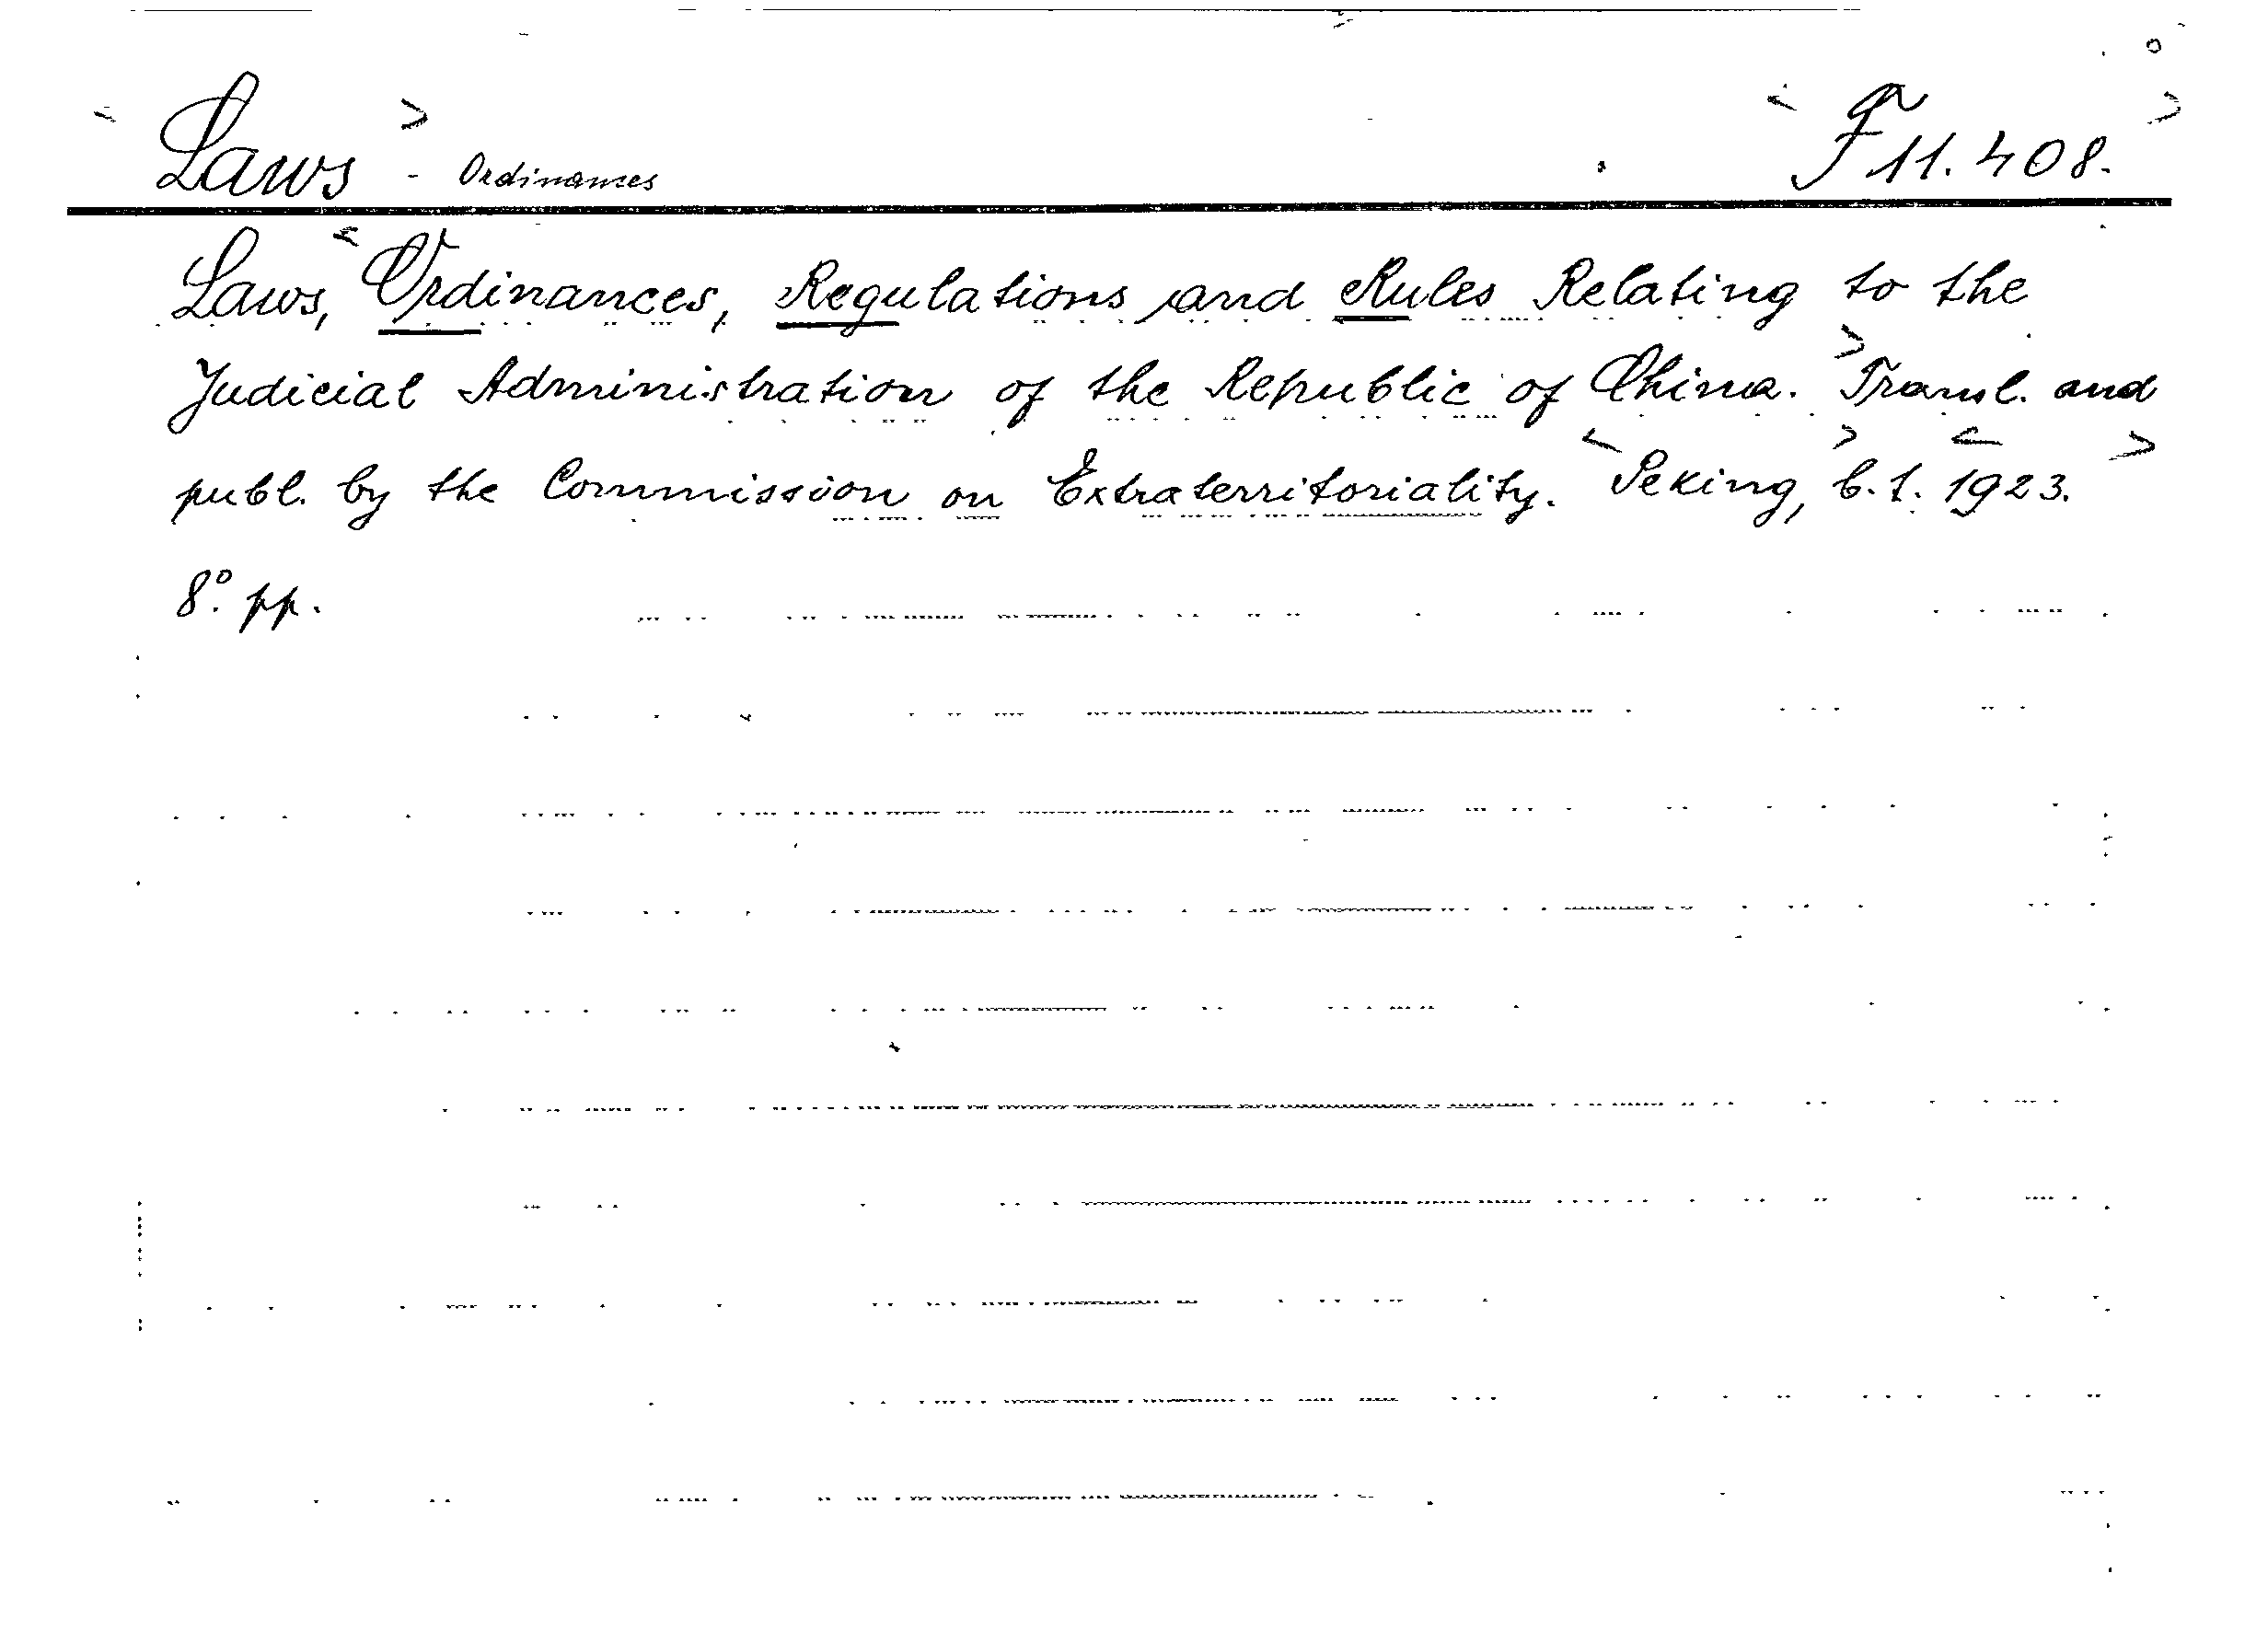 Laws - Ordinances F 11.408.
Laws, Ordinances, Regulations and Rules Relating to the
Judicial Administration of the Republic of China. Transl. and
publ. by the Commission on Extraterritoriality. Peking, 1923.
8°. pp.